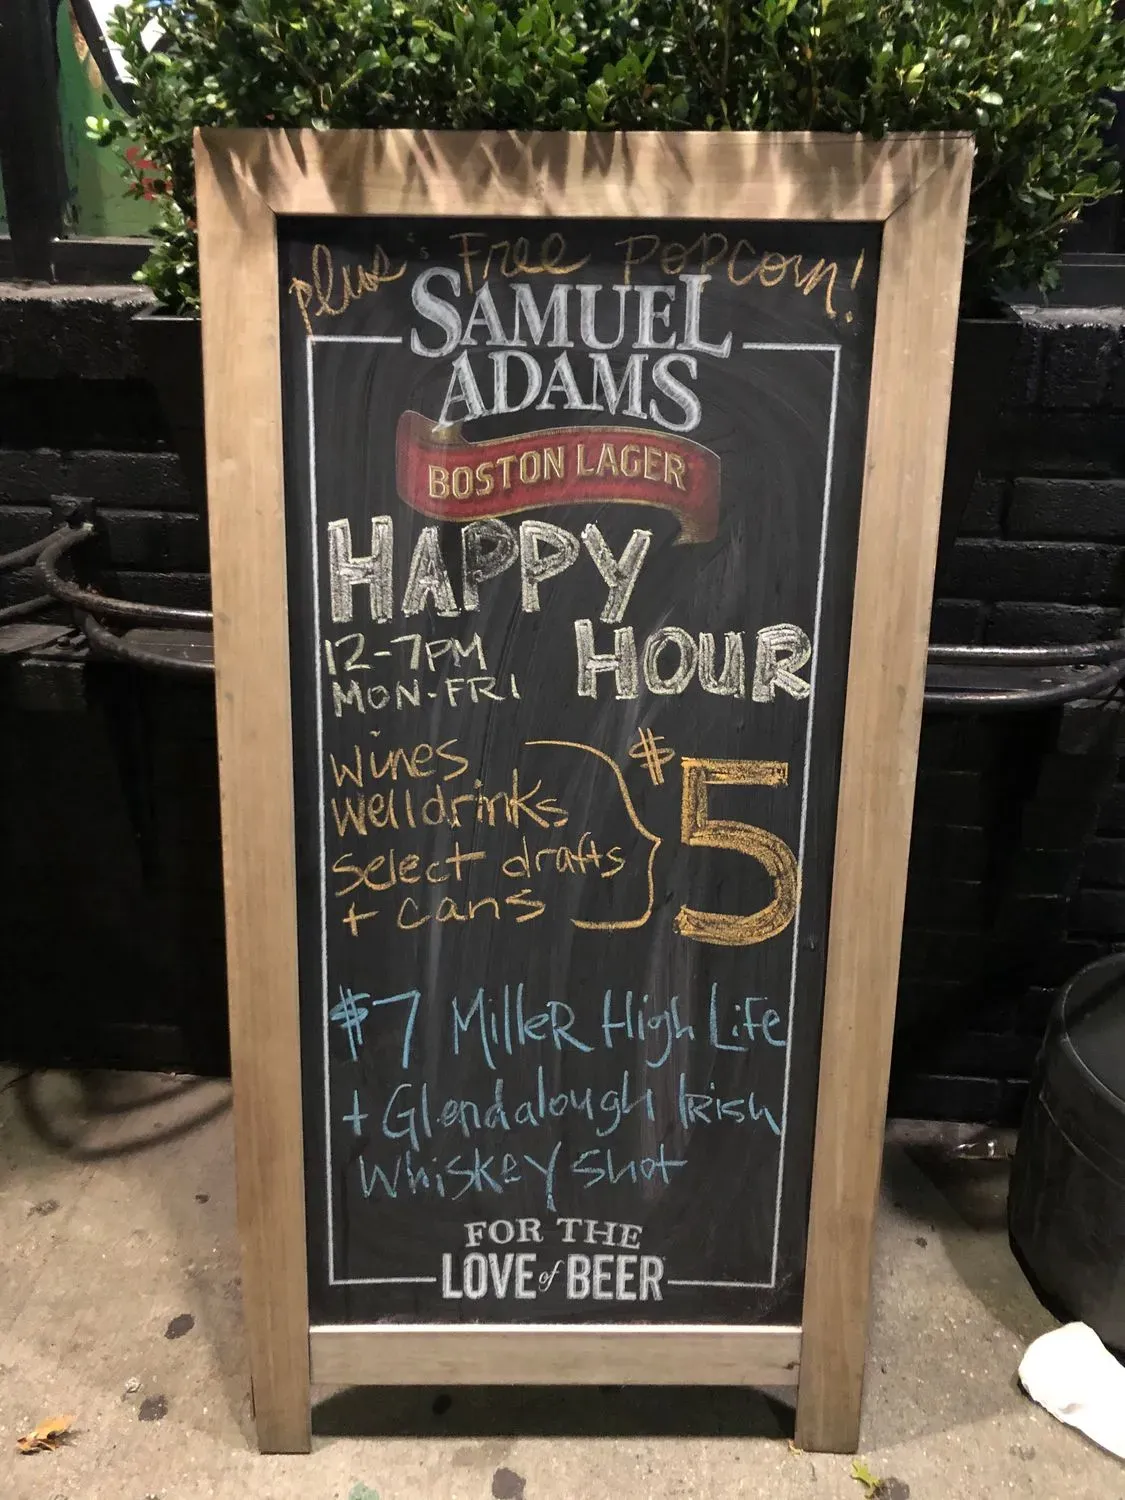 Plus Free Popcorn!
SAMUEL
ADAMS
BOSTON LAGER
HAPPY
HOUR
12-7PM
MON-FRI
wines
well drinks
select drafts
+ cans
$5
$7 Miller High Life
+ Glendalough Irish
Whiskey shot
FOR THE
LOVE of BEER